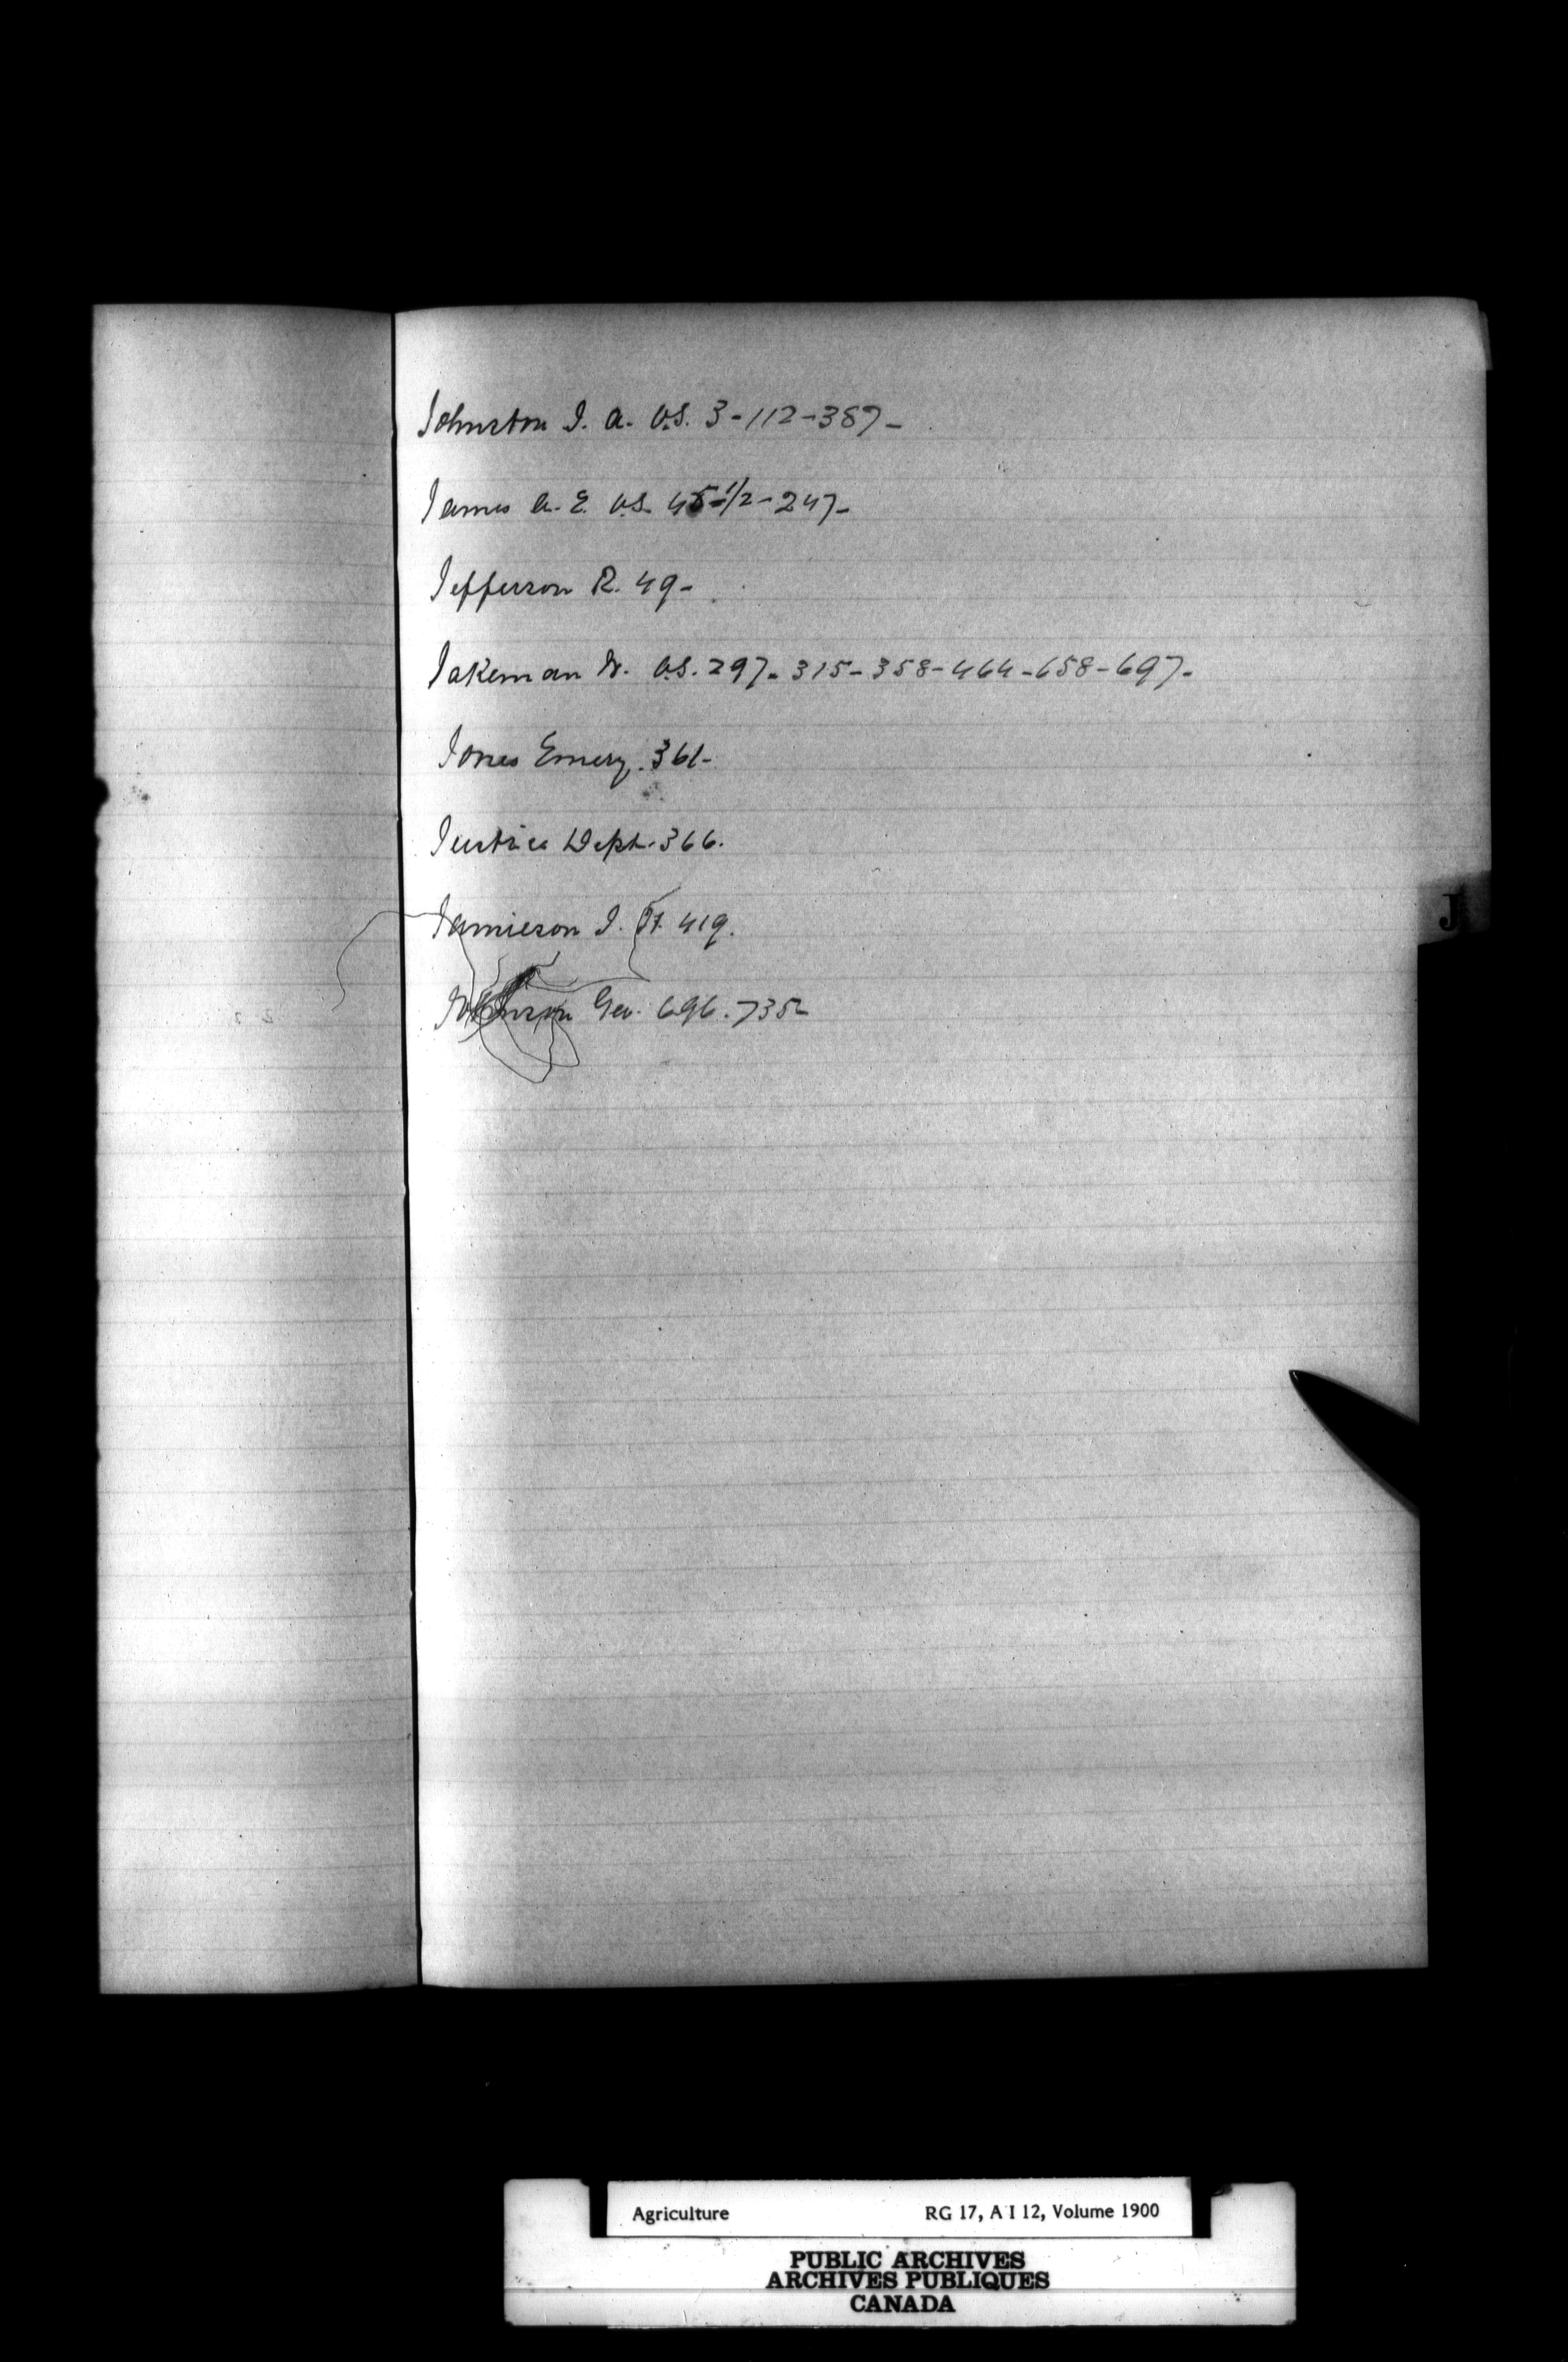 Johnston J. A. V.S. 3-112-387-
James A. E. V.S. 45-1/2-247-
Jefferson R. 49-
Jakeman W. V.S. 297. 315-358-464-658-697-
Jones Emery. 361-
Justice Dept. 366.
J
Jamieson J. 419.
Johnson Geo. 696. 735-
Agriculture RG 17, A I 12, Volume 1900
PUBLIC ARCHIVES
ARCHIVES PUBLIQUES
CANADA